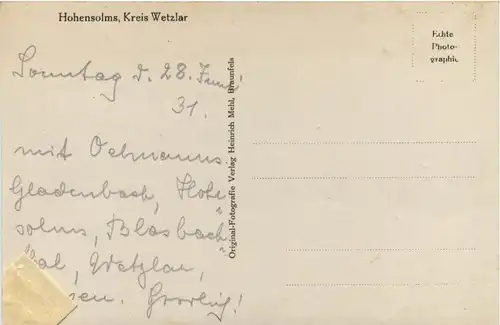 Hohensolms, Kreis Wetzlar
Echte
Photo-
graphie
Sonntag d. 28. Juni
31.
mit Oehmanns.
Gladenbach, Hohe
solms, Blasbach
tal, Wetzlar,
Original-Fotografie Verlag Heinrich Mehl, Braunfels